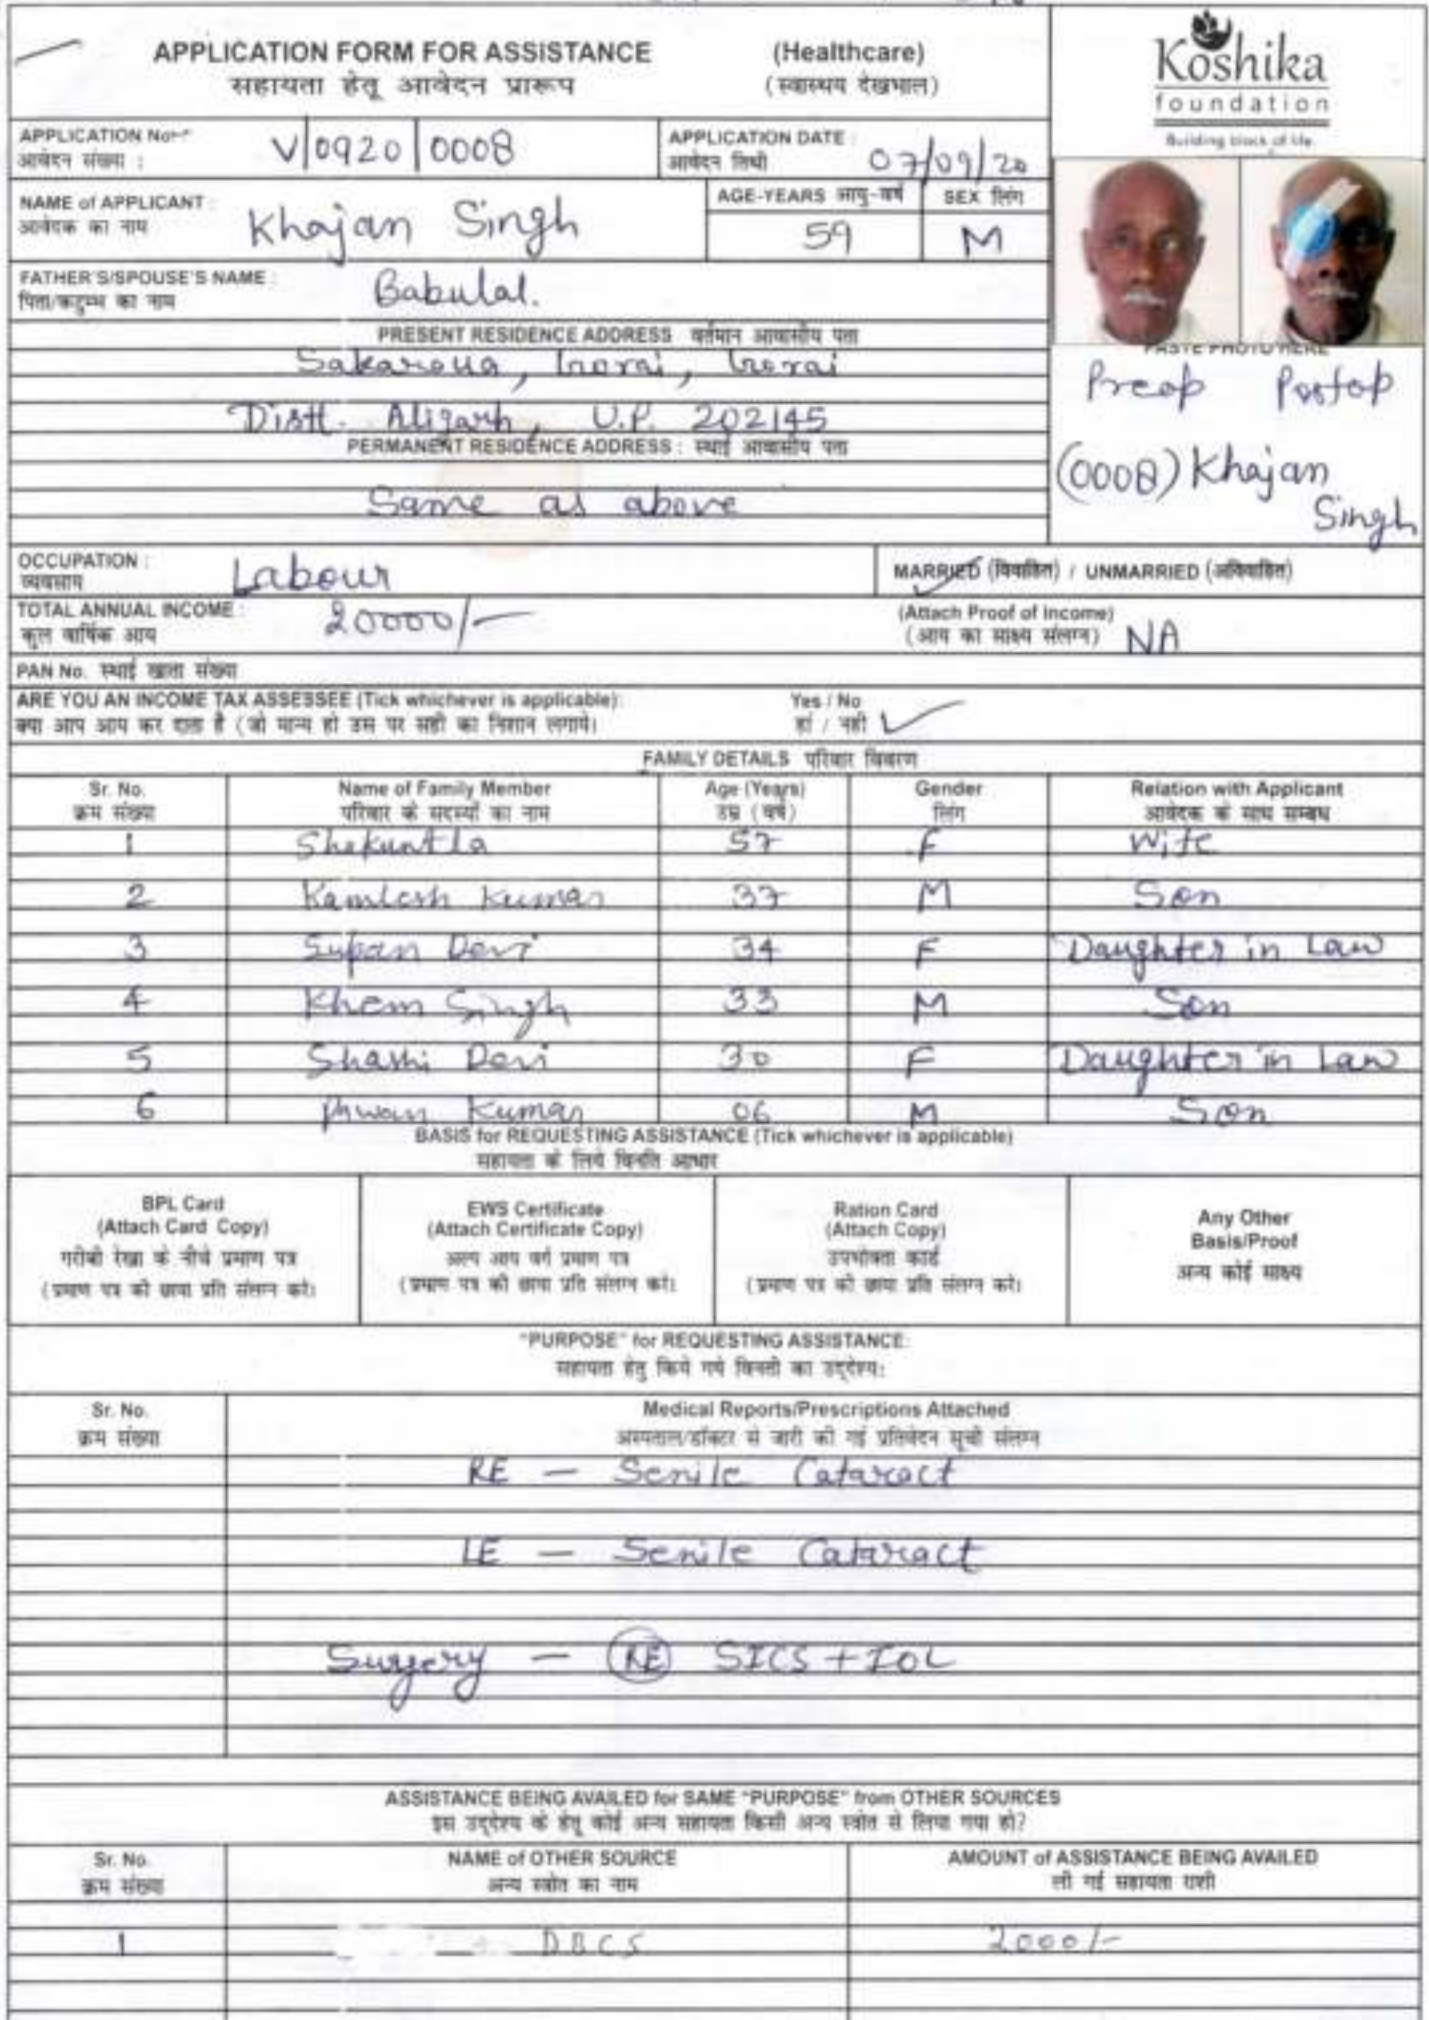 APPLICATION FORM FOR ASSISTANCE (Healthcare)
सहायता हेतू आवेदन प्रारूप (स्वास्थय देखभाल)
Koshika
foundation
Building block of life
APPLICATION No
आवेदन संख्या :
V/0920/0008
APPLICATION DATE :
आवेदन तिथी
07/09/20
NAME of APPLICANT :
आवेदक का नाम
Khajan Singh
AGE-YEARS आयु-वर्ष
59
SEX लिंग
M
FATHER'S/SPOUSE'S NAME :
पिता/कटुम्भ का नाम
Babulal.
PRESENT RESIDENCE ADDRESS वर्तमान आवासीय पता
Distt. Aligarh, U.P. 202145
PERMANENT RESIDENCE ADDRESS : स्थाई आवासीय पता
Same as above
PASTE PHOTO HERE
Preop Postop
(0008) Khajan
Singh
OCCUPATION :
व्यवसाय
Labour
MARRIED (विवाहित) / UNMARRIED (अविवाहित)
TOTAL ANNUAL INCOME :
कुल वार्षिक आय
20000/-
(Attach Proof of Income)
(आय का साक्ष्य संलग्न) NA
PAN No. स्थाई खाता संख्या
ARE YOU AN INCOME TAX ASSESSEE (Tick whichever is applicable): Yes / No
क्या आप आय कर दाता है (जो मान्य हो उस पर सही का निशान लगाये। हां / नही
FAMILY DETAILS परिवार विवरण
Sr. No. Name of Family Member Age (Years) Gender Relation with Applicant
क्रम संख्या परिवार के सदस्यों का नाम उम्र (वर्ष) लिंग आवेदक के साथ सम्बध
1 Shakuntla 57 F Wife
2 Kamlesh Kumar 37 M Son
3 Devi 34 F Daughter in Law
4 Khem Singh 33 M Son
5 Shashi Devi 30 F Daughter in Law
6 Kumar 06 M Son
BASIS for REQUESTING ASSISTANCE (Tick whichever is applicable)
सहायता के लिये विनति आधार
BPL Card
(Attach Card Copy)
गरीबी रेखा के नीचे प्रमाण पत्र
(प्रमाण पत्र की छाया प्रति संलग्न करे।
EWS Certificate
(Attach Certificate Copy)
अल्प आय वर्ग प्रमाण पत्र
(प्रमाण पत्र की छाया प्रति संलग्न करे।
Ration Card
(Attach Copy)
उपभोक्ता कार्ड
(प्रमाण पत्र की छाया प्रति संलग्न करे।
Any Other
Basis/Proof
अन्य कोई साक्ष्य
"PURPOSE" for REQUESTING ASSISTANCE:
सहायता हेतु किये गये विनती का उद्देश्य:
Sr. No. Medical Reports/Prescriptions Attached
क्रम संख्या अस्पताल/डॉक्टर से जारी की गई प्रतिवेदन सूची संलग्न
RE — Senile Cataract
LE — Senile Cataract
Surgery — RE SICS + IOL
ASSISTANCE BEING AVAILED for SAME "PURPOSE" from OTHER SOURCES
इस उद्देश्य के हेतू कोई अन्य सहायता किसी अन्य स्त्रोत से लिया गया हो?
Sr. No. NAME of OTHER SOURCE AMOUNT of ASSISTANCE BEING AVAILED
क्रम संख्या अन्य स्त्रोत का नाम ली गई सहायता राशी
1 DBCS 2000/-